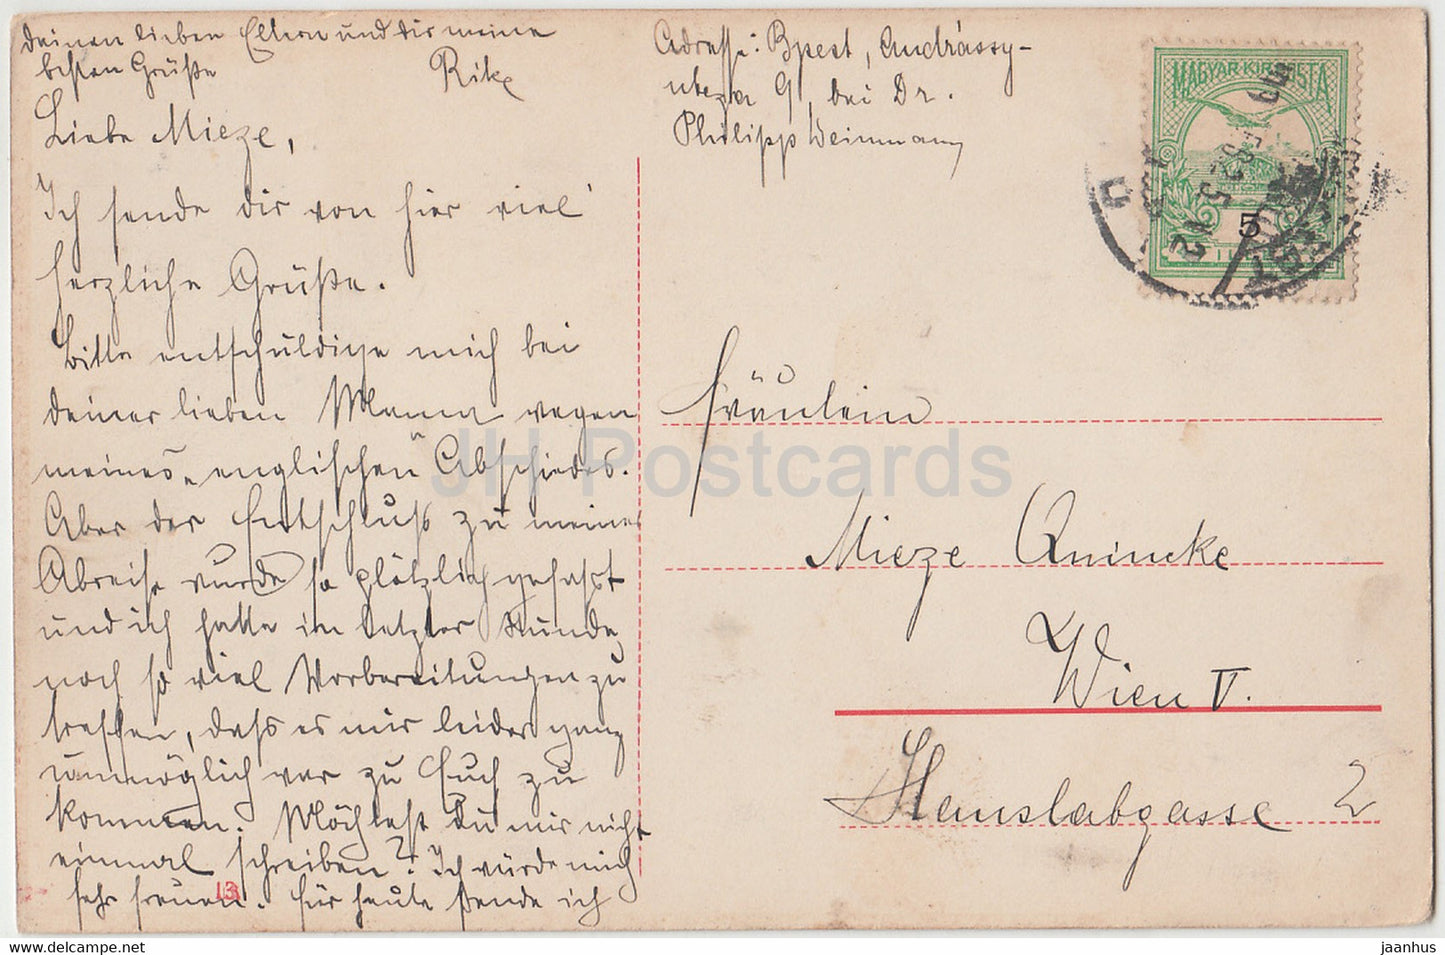 Liebe Mieze,
Ich sende dir von hier viel
herzliche Grüße.
Bitte entschuldige mich bei
deiner lieben Mama wegen
meines „englischen“ Abschiedes.
Aber der Entschluß zu meiner
Abreise wurde so plötzlich gefasst
und ich hatte im letzter Stunde
noch so viel Vorbereitungen zu
treffen, daß es mir leider ganz
unmöglich war zu Euch zu
kommen. Möchtest Du mir nicht
einmal schreiben? Ich würde mich
sehr freuen. Für heute sende ich
deinen lieben Eltern und dir meine
besten Grüße Rike
Adresse: Bpest, Andrássy-
utcza 9, bei Dr.
Philipp Weinmann
MAGYAR KIR. POSTA
5
912
Fräulein
Mieze Quincke
Wien V.
Hauslabgasse 2
13
JH Postcards
jaanhus